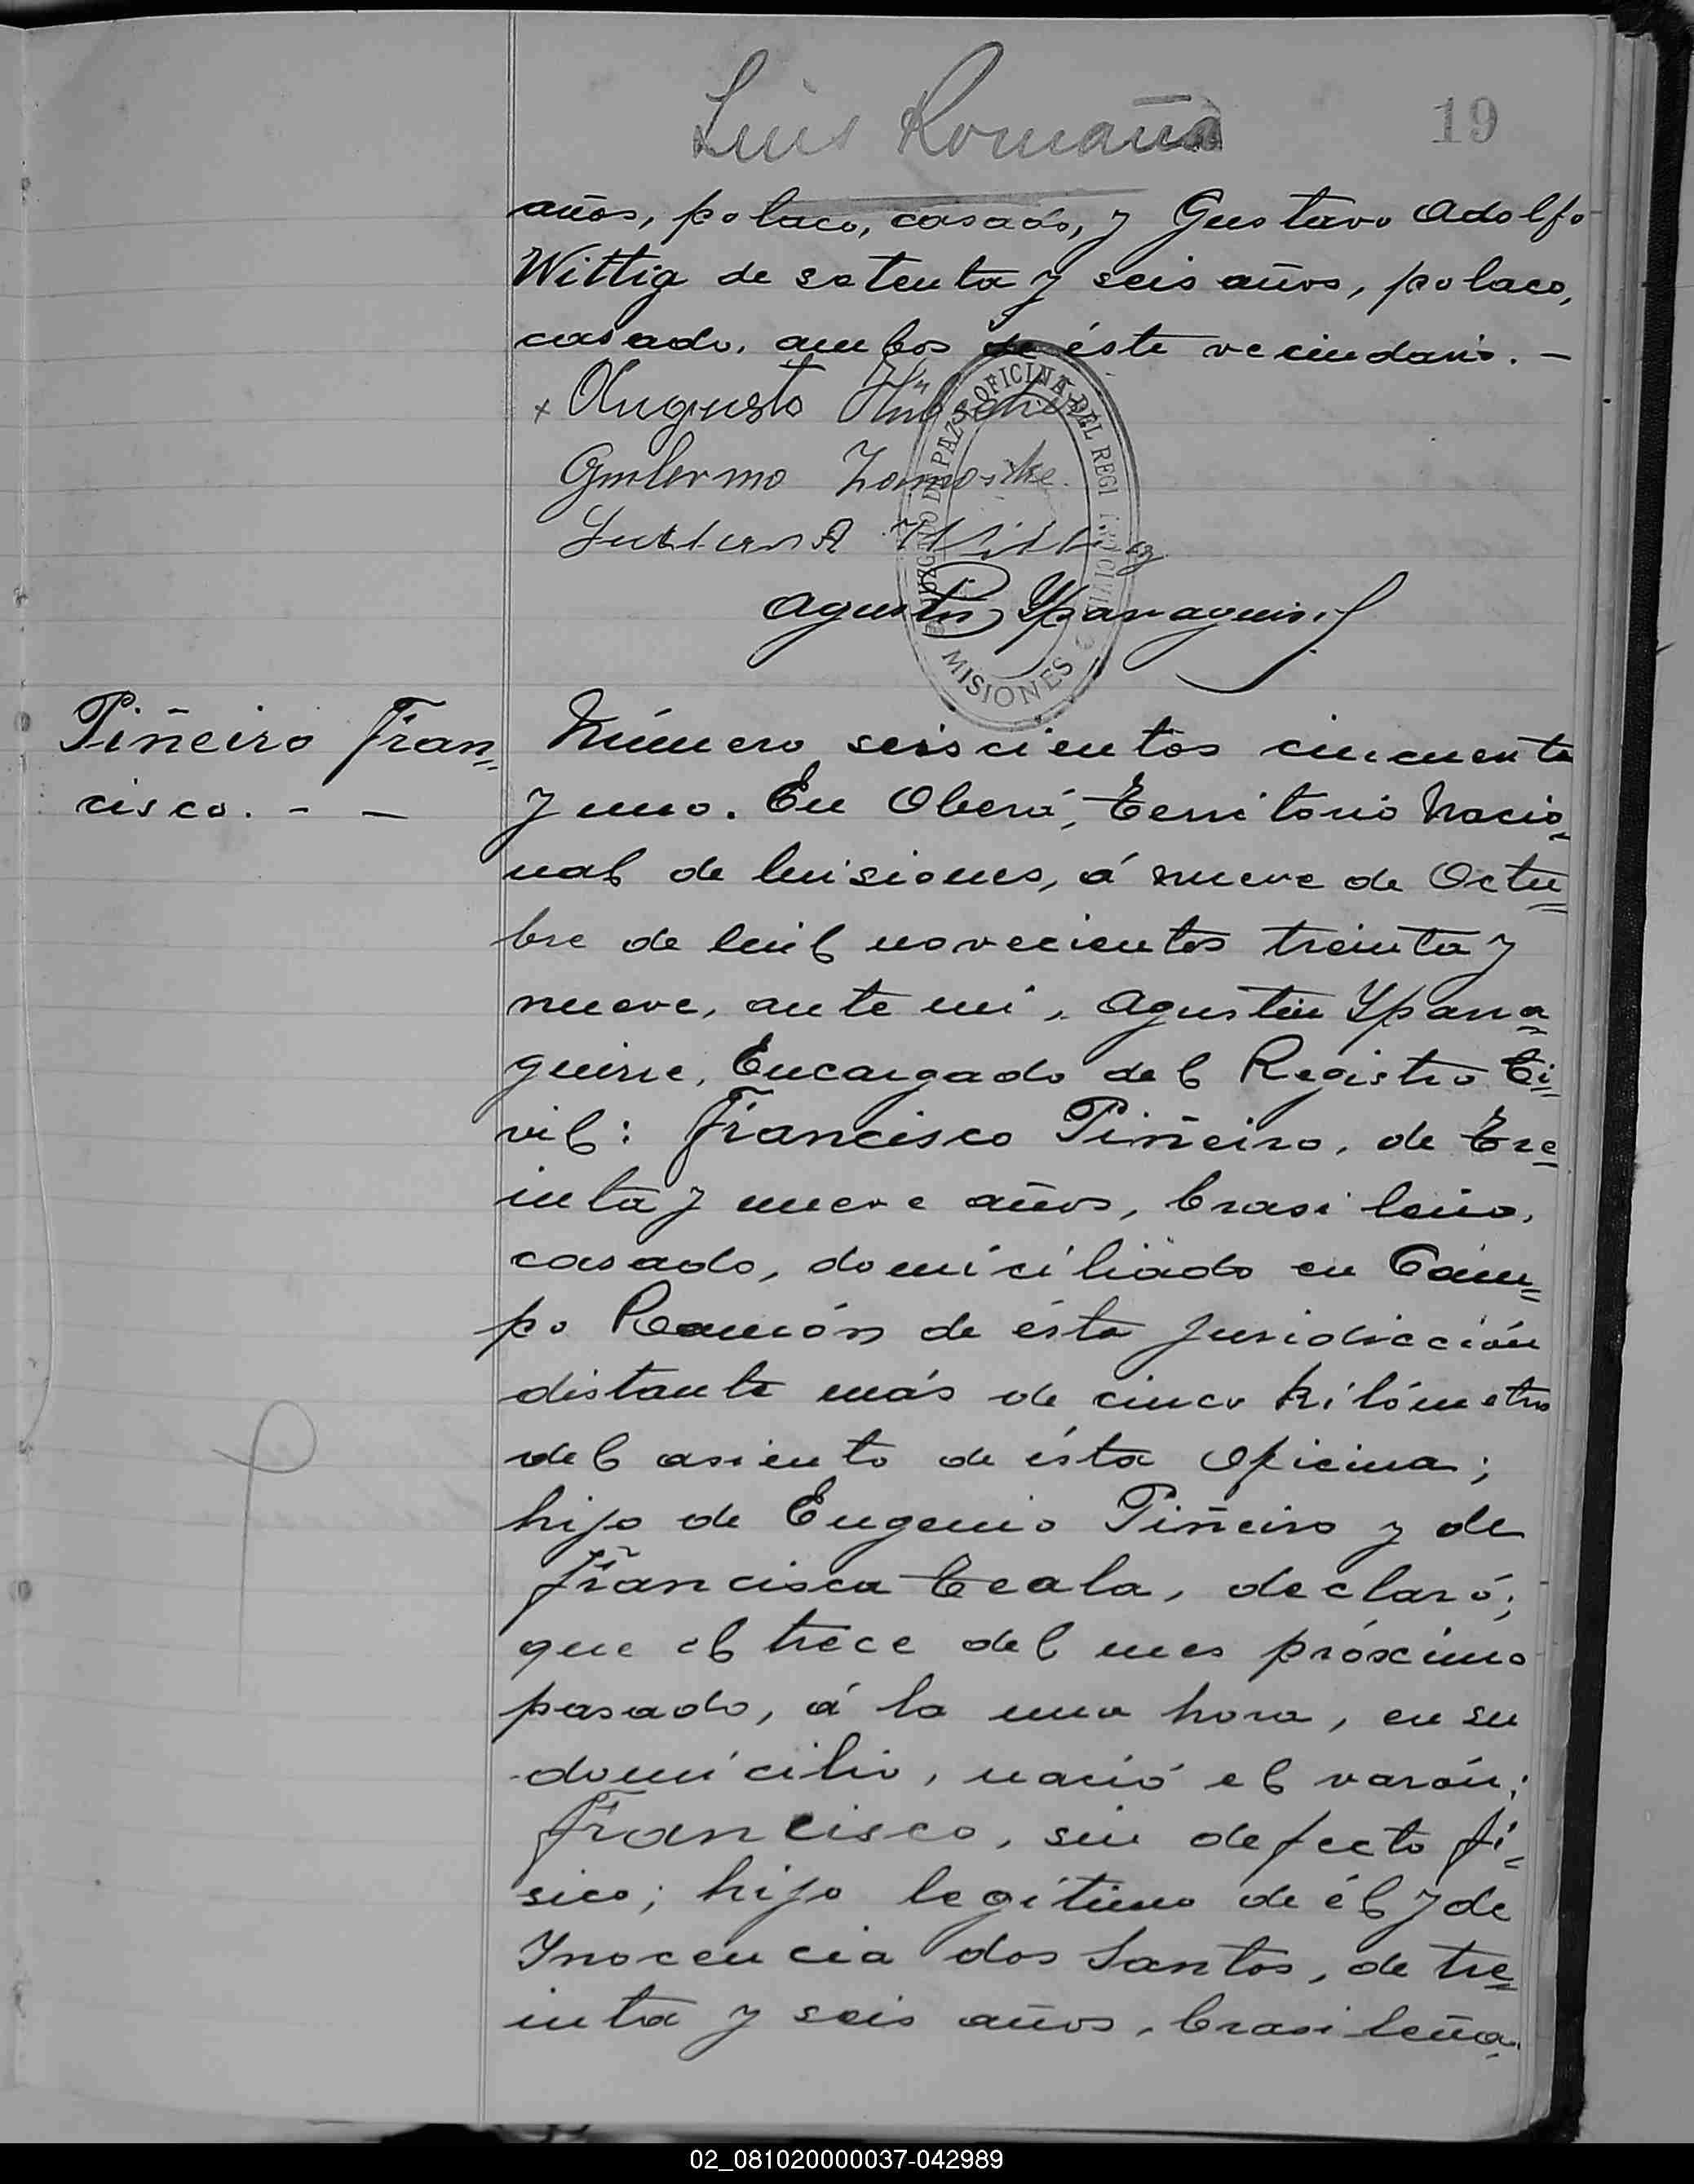 Luis Romaña
19
años, polaco, casado, y Gustavo Adolfo
Wittig de setenta y seis años, polaco,
casado, ambos de éste vecindario. —
x Augusto
Guilermo
Wittig
Agustín Yparaguirre
JUZGADO DE PAZ Y OFICINA DEL REGISTRO CIVIL
MISIONES
Piñeiro Fran=
cisco. - —
Número seiscientos cincuenta
y uno. En Oberá, Territorio Nacio=
nal de Misiones, á nueve de Octu=
bre de mil novecientos treinta y
nueve, ante mi, Agustín Yparra=
guirre, Encargado del Registro Ci=
vil: Francisco Piñeiro, de Tre=
inta y nueve años, brasileño,
casado, domiciliado en Cam=
po Ramón de ésta jurisdicción
distante más de cinco kilómetros
del asiento de ésta Oficina;
hijo de Eugenio Piñeiro y de
Francisca Ceala, declaró;
que el trece del mes próximo
pasado, á la una hora, en su
domicilio, nació el varón;
Francisco, sin defecto fí=
sico; hijo legítimo de él y de
Ynocencia dos Santos, de tre=
inta y seis años, brasileña,
02_081020000037-042989